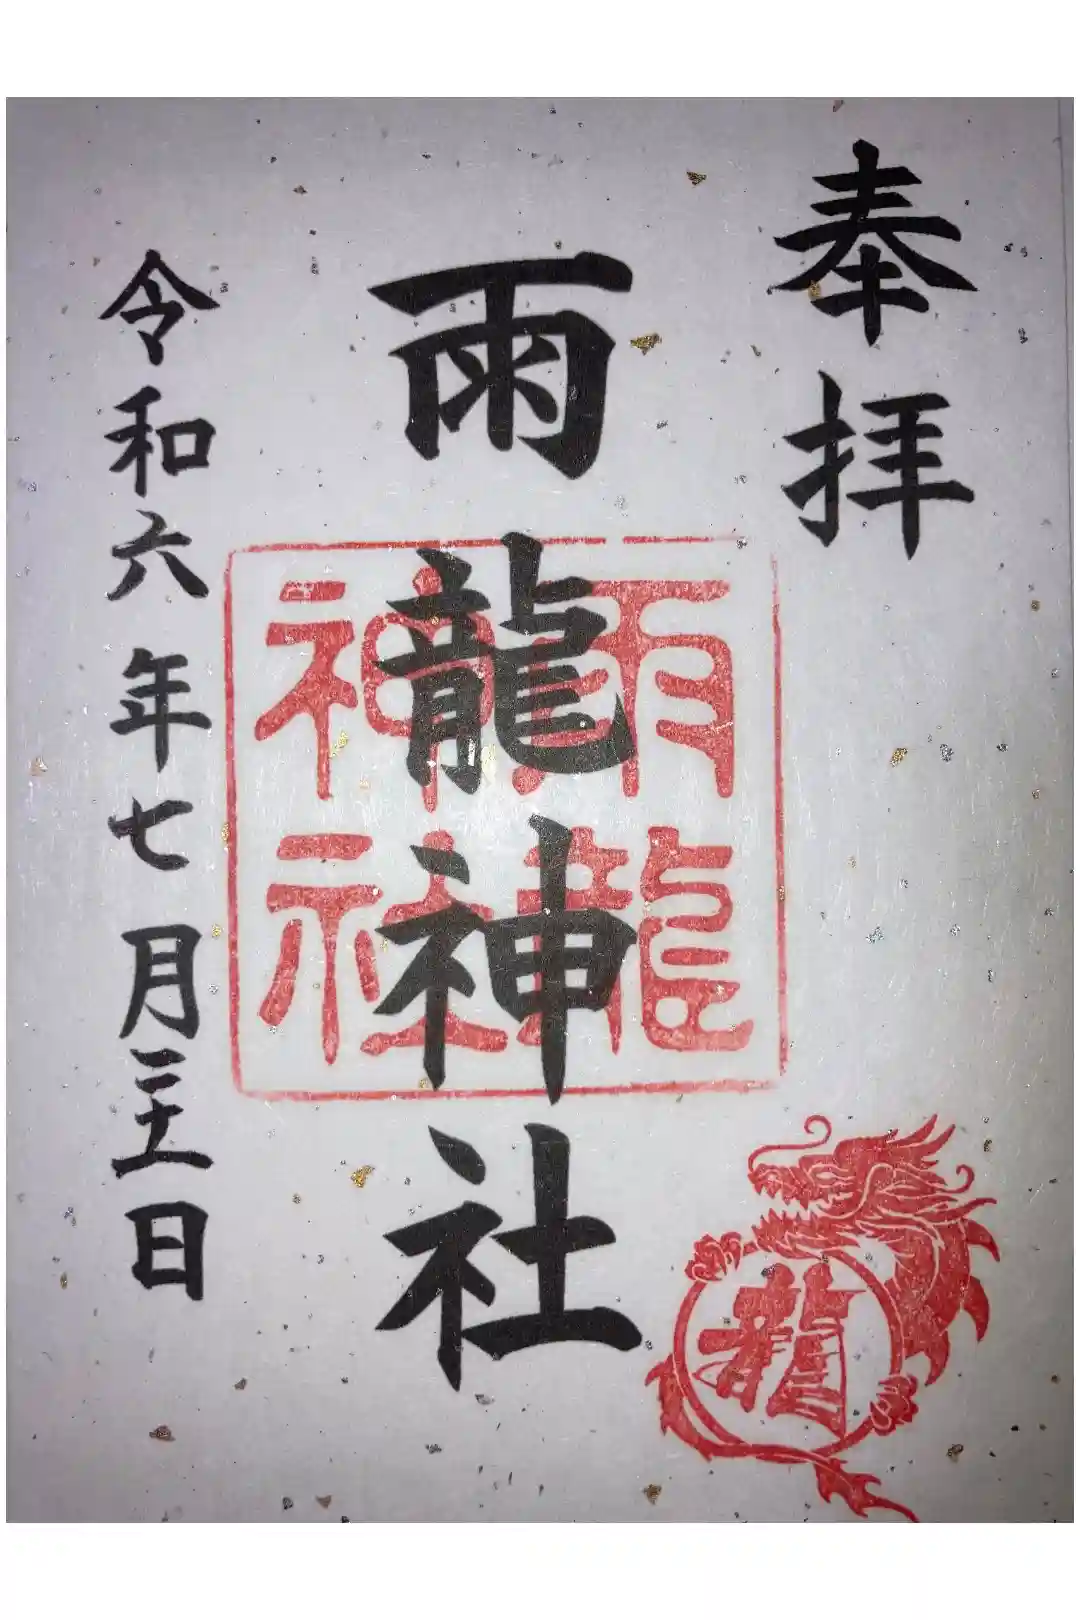 奉拝
雨龍神社
令和六年七月二十一日
雨龍
神社
龍